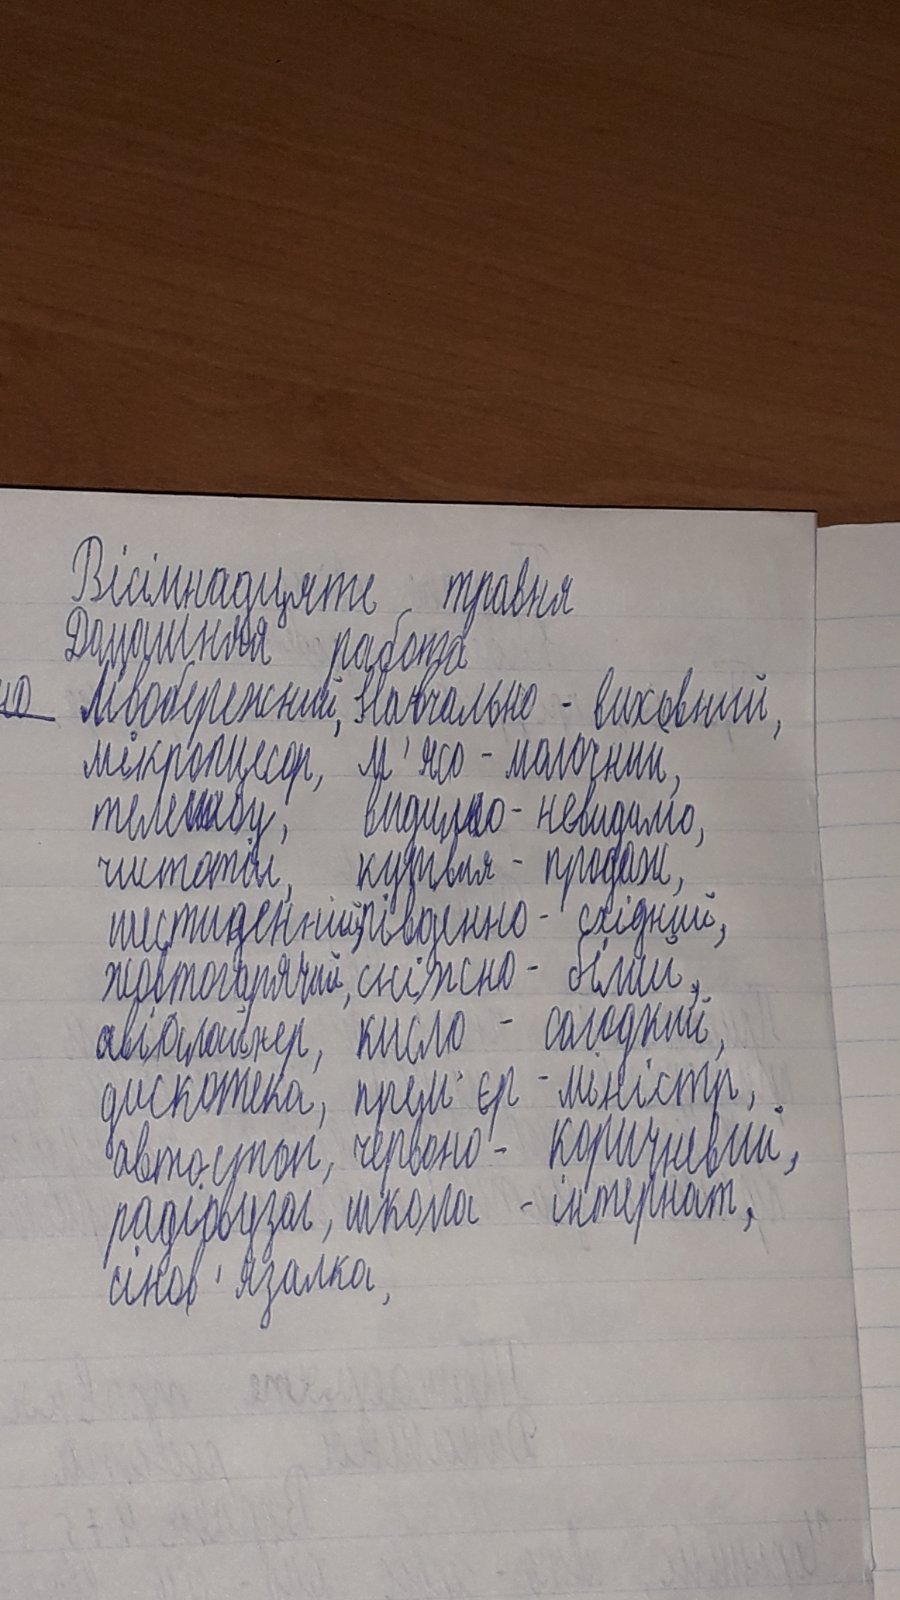 Вісімнадцяте травня
Домашня работа
но Лівобережний, Навчально - виховний,
мікропцесор, м'ясо - молочний,
телешоу, видимо - невидимо,
чистотіл, купівля - продаж,
шестиденний, південно - східний,
жовтогарячий, сніжно - білий,
авіалайнер, кисло - солодкий,
дискотека, прем'єр - міністр,
автостоп, червоно - коричневий,
радіовузол, школа - інтернат,
сінов'язалка,